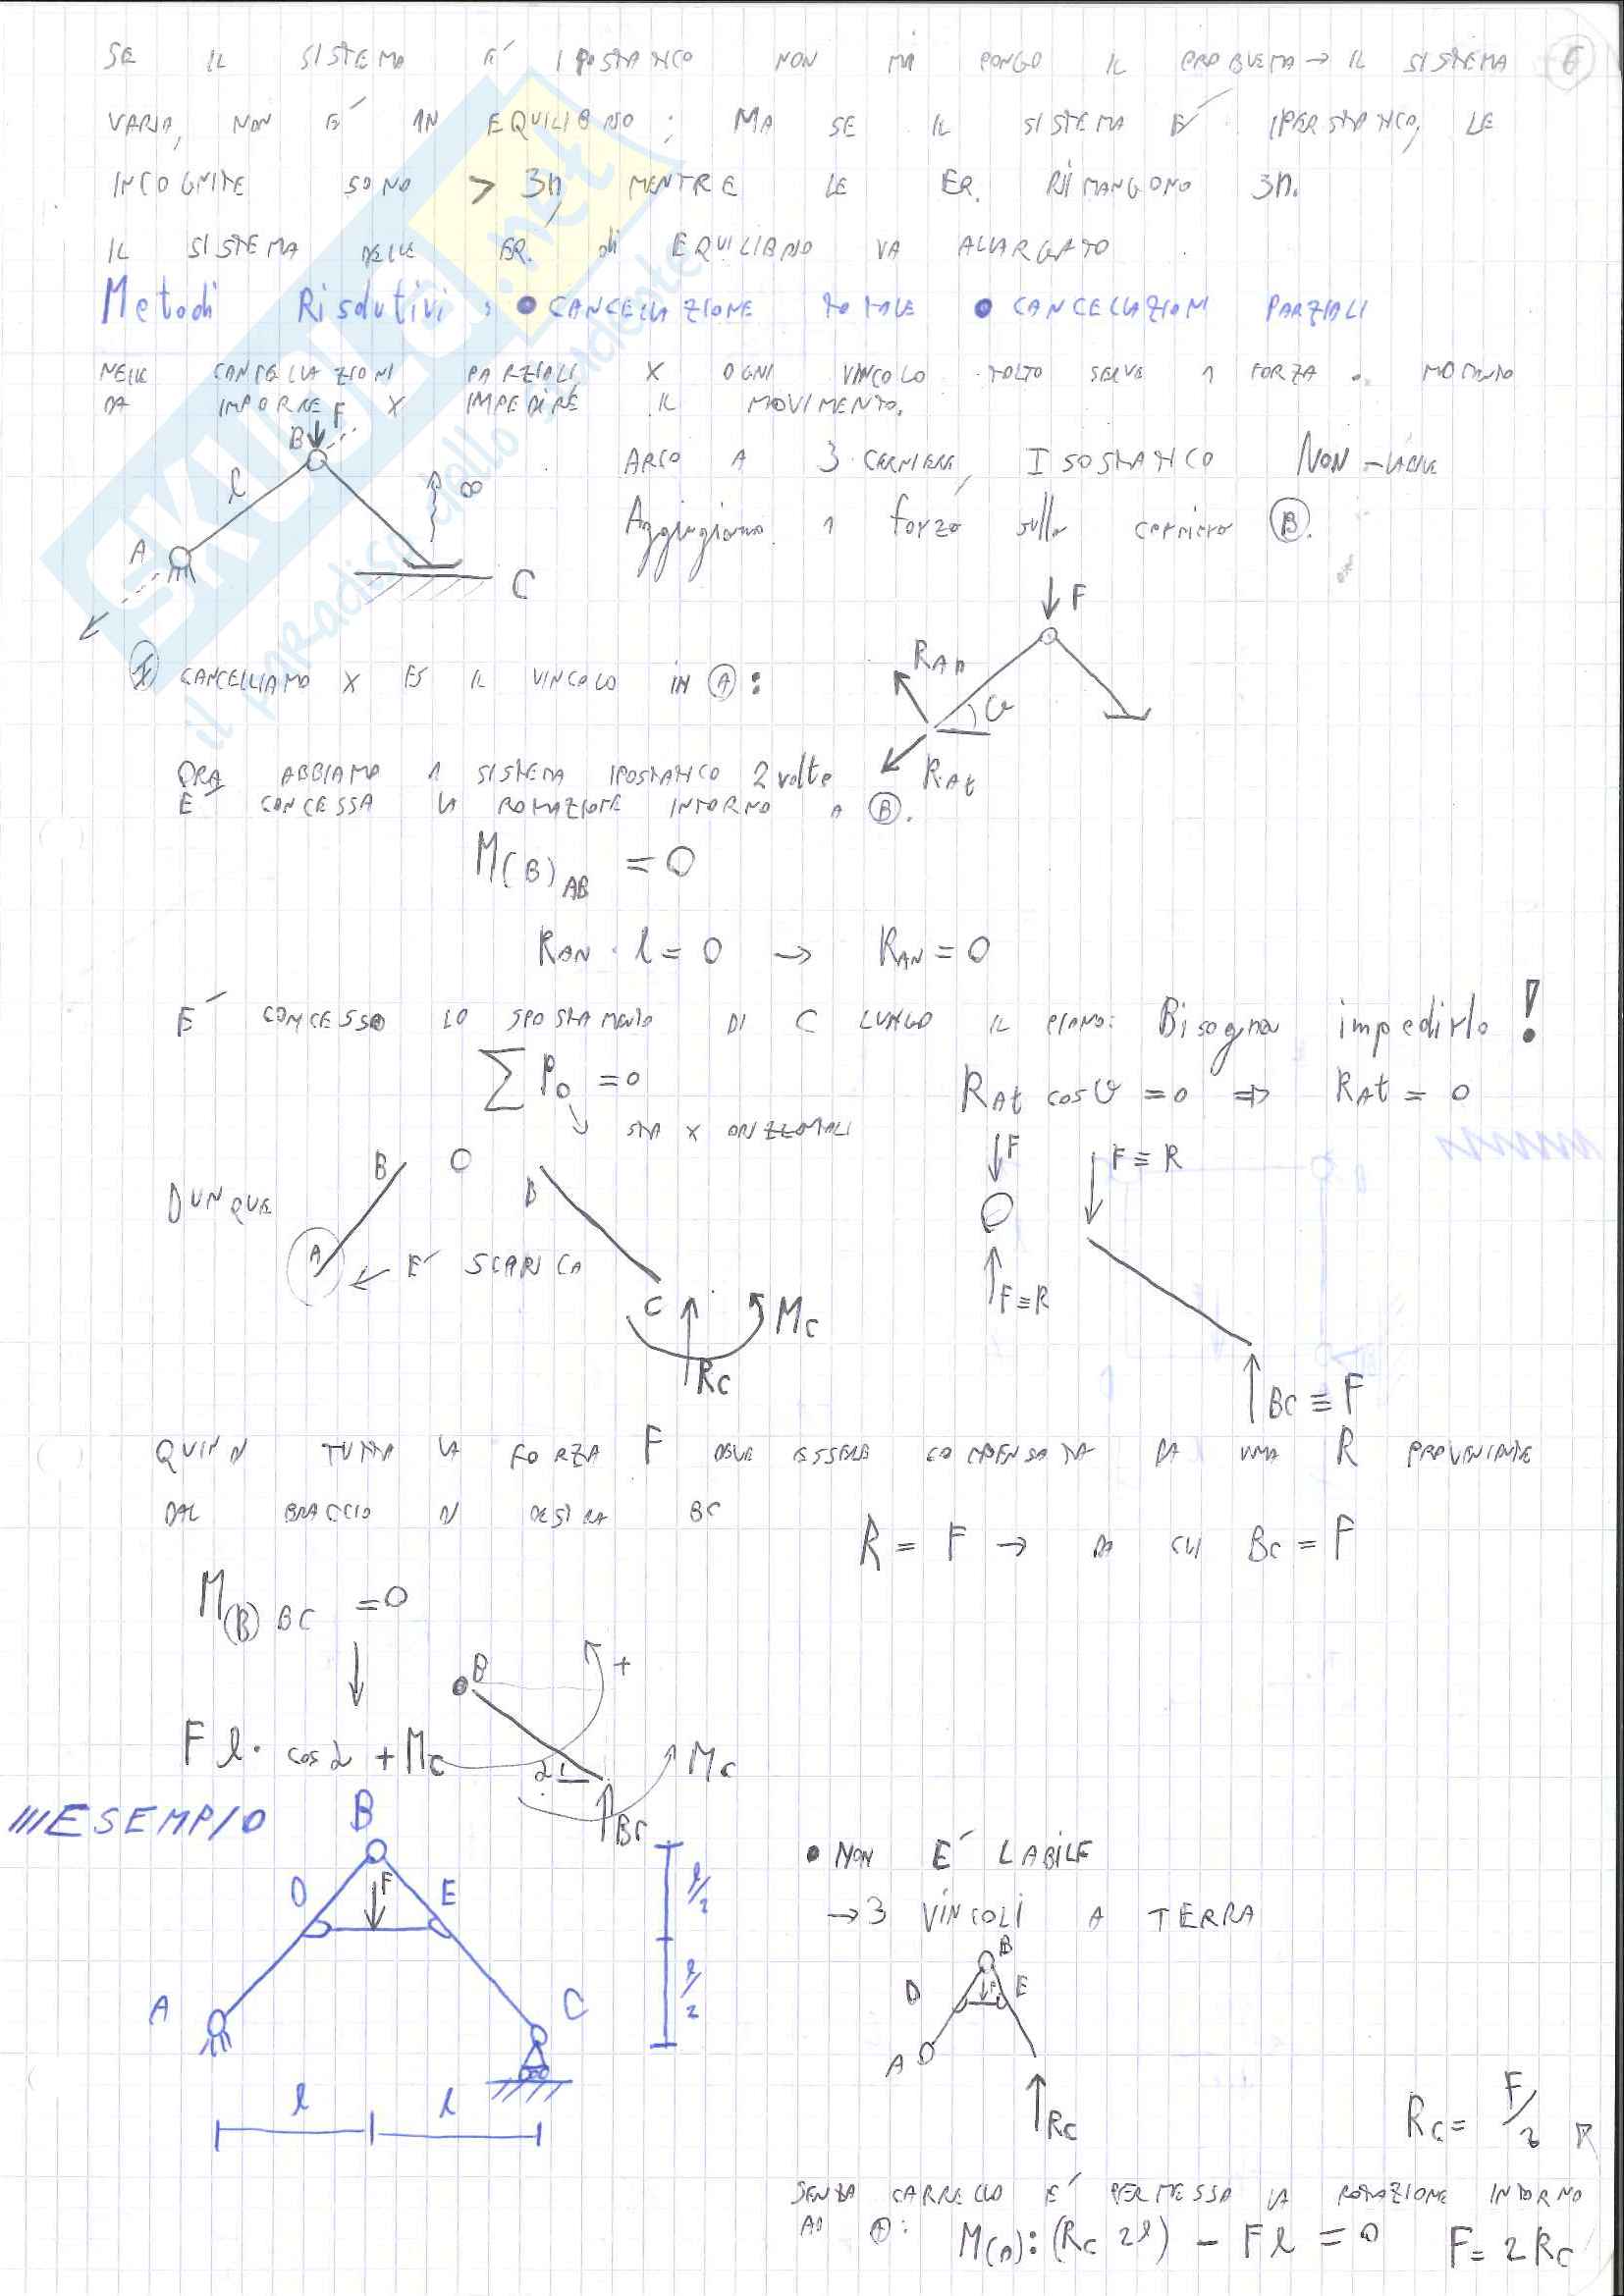 SE IL SISTEMA E' IPOSTATICO NON MI PONGO IL PROBLEMA → IL SISTEMA 6
VARIA, NON E' IN EQUILIBRIO; MA SE IL SISTEMA E' IPERSTATICO, LE
INCOGNITE SONO > 3n, MENTRE LE EQ. RIMANGONO 3n.
IL SISTEMA DELLE EQ. di EQUILIBRIO VA ALLARGATO
Metodi Risolutivi: • CANCELLAZIONE TOTALE • CANCELLAZIONI PARZIALI
NELLE CANCELLAZIONI PARZIALI, X OGNI VINCOLO TOLTO SERVE 1 FORZA o MOMENTO
DA IMPORRE X IMPEDIRE IL MOVIMENTO.
F
B
l
∞
A
C
ARCO A 3 CERNIERE, ISOSTATICO NON-LABILE
Aggiungiamo 1 forza sulla cerniera B.
F
I CANCELLIAMO X ES IL VINCOLO IN A:
RAn
RAt
ORA ABBIAMO 1 SISTEMA IPOSTATICO 2 volte
E' CONCESSA LA ROTAZIONE INTORNO A B.
M(B)AB = 0
RAN · l = 0 → RAN = 0
E' CONCESSO LO SPOSTAMENTO DI C LUNGO IL PIANO: Bisogna impedirlo!
∑ Po = 0
STA X ORIZZONTALI
RAt cosϑ = 0 ⇒ RAt = 0
DUNQUE
B
A
E' SCARICA
B
C
RC
MC
F
F≡R
F≡R
BC ≡ F
QUINDI TUTTA LA FORZA F DEVE ESSERE COMPENSATA DA UNA R PROVENIENTE
DAL BRACCIO DI DESTRA BC
R = F → DA CUI BC = F
M(B) BC = 0
F l · cos α + MC
B
+
α
MC
BC
ESEMPIO
B
D
F
E
A
C
l
l
l/2
l/2
• NON E' LABILE
→ 3 VINCOLI A TERRA
B
D
F
E
A
RC
RC = F/2
SENZA CARRELLO E' PERMESSA LA ROTAZIONE INTORNO
AD A:
M(A): (RC 2l) - Fl = 0 F = 2RC
SKUOLA.net
il paradiso dello studente